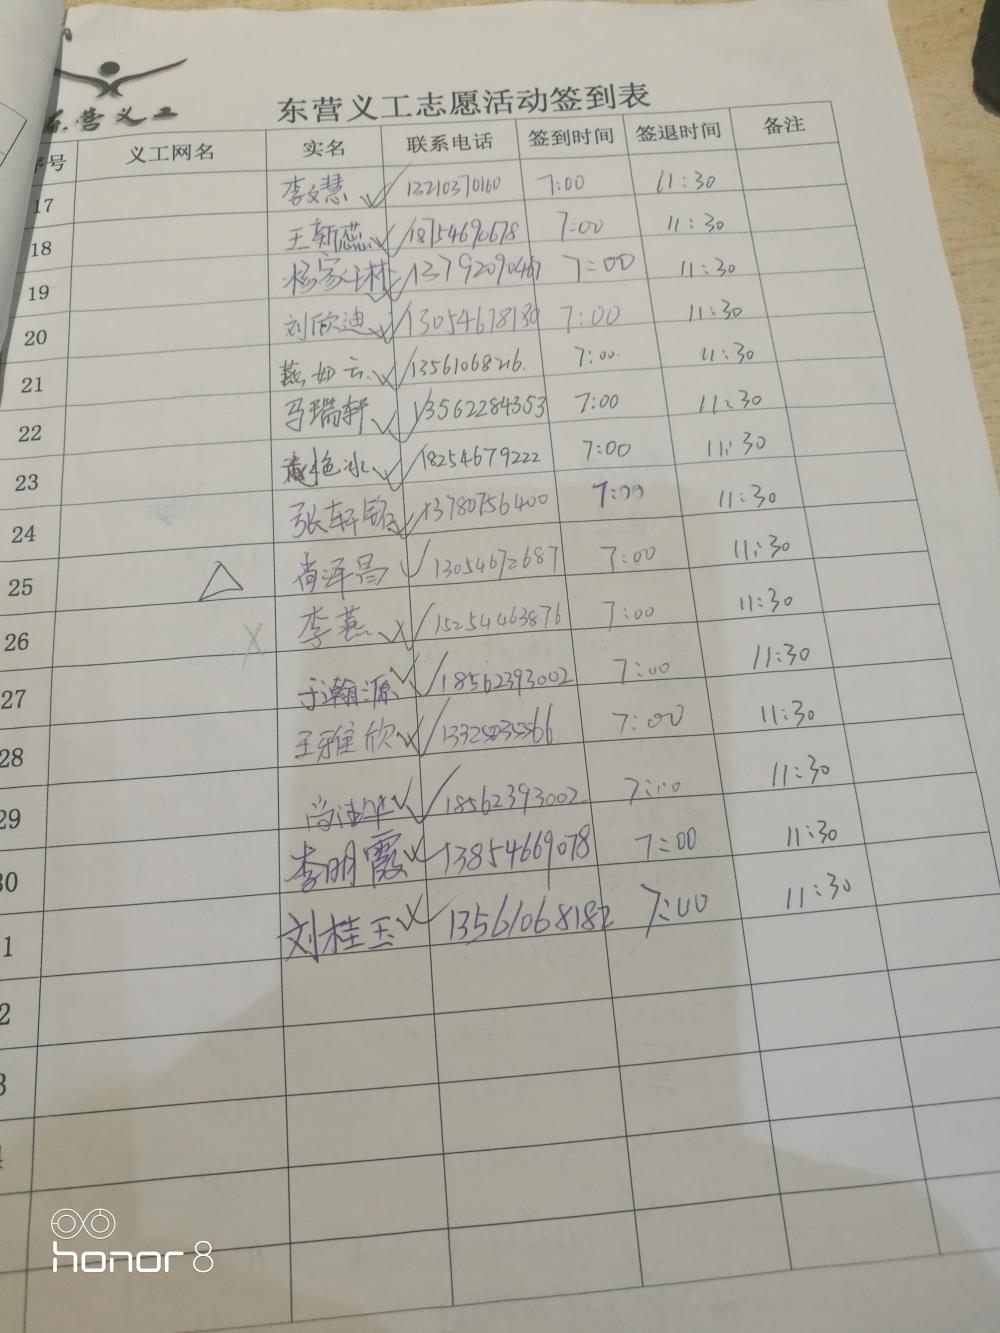 东营义工
东营义工志愿活动签到表
序号 义工网名 实名 联系电话 签到时间 签退时间 备注
17 李文慧 13210370160 7:00 11:30
18 王新蕊 18754690678 7:00 11:30
19 杨家林 13792090467 7:00 11:30
20 刘欣迪 13054678130 7:00 11:30
21 燕如云 13561068216 7:00 11:30
22 马瑞轩 13562284353 7:00 11:30
23 艳冰 18254679222 7:00 11:30
24 张轩铭 13780756400 7:00 11:30
25 尚泽昌 13054672687 7:00 11:30
26 李燕 15254463876 7:00 11:30
27 于瀚源 18562393002 7:00 11:30
28 王雅欣 7:00 11:30
29 18562393002 7:00 11:30
30 李明霞 13854669078 7:00 11:30
1 刘桂玉 13561068182 7:00 11:30
2
3
honor 8